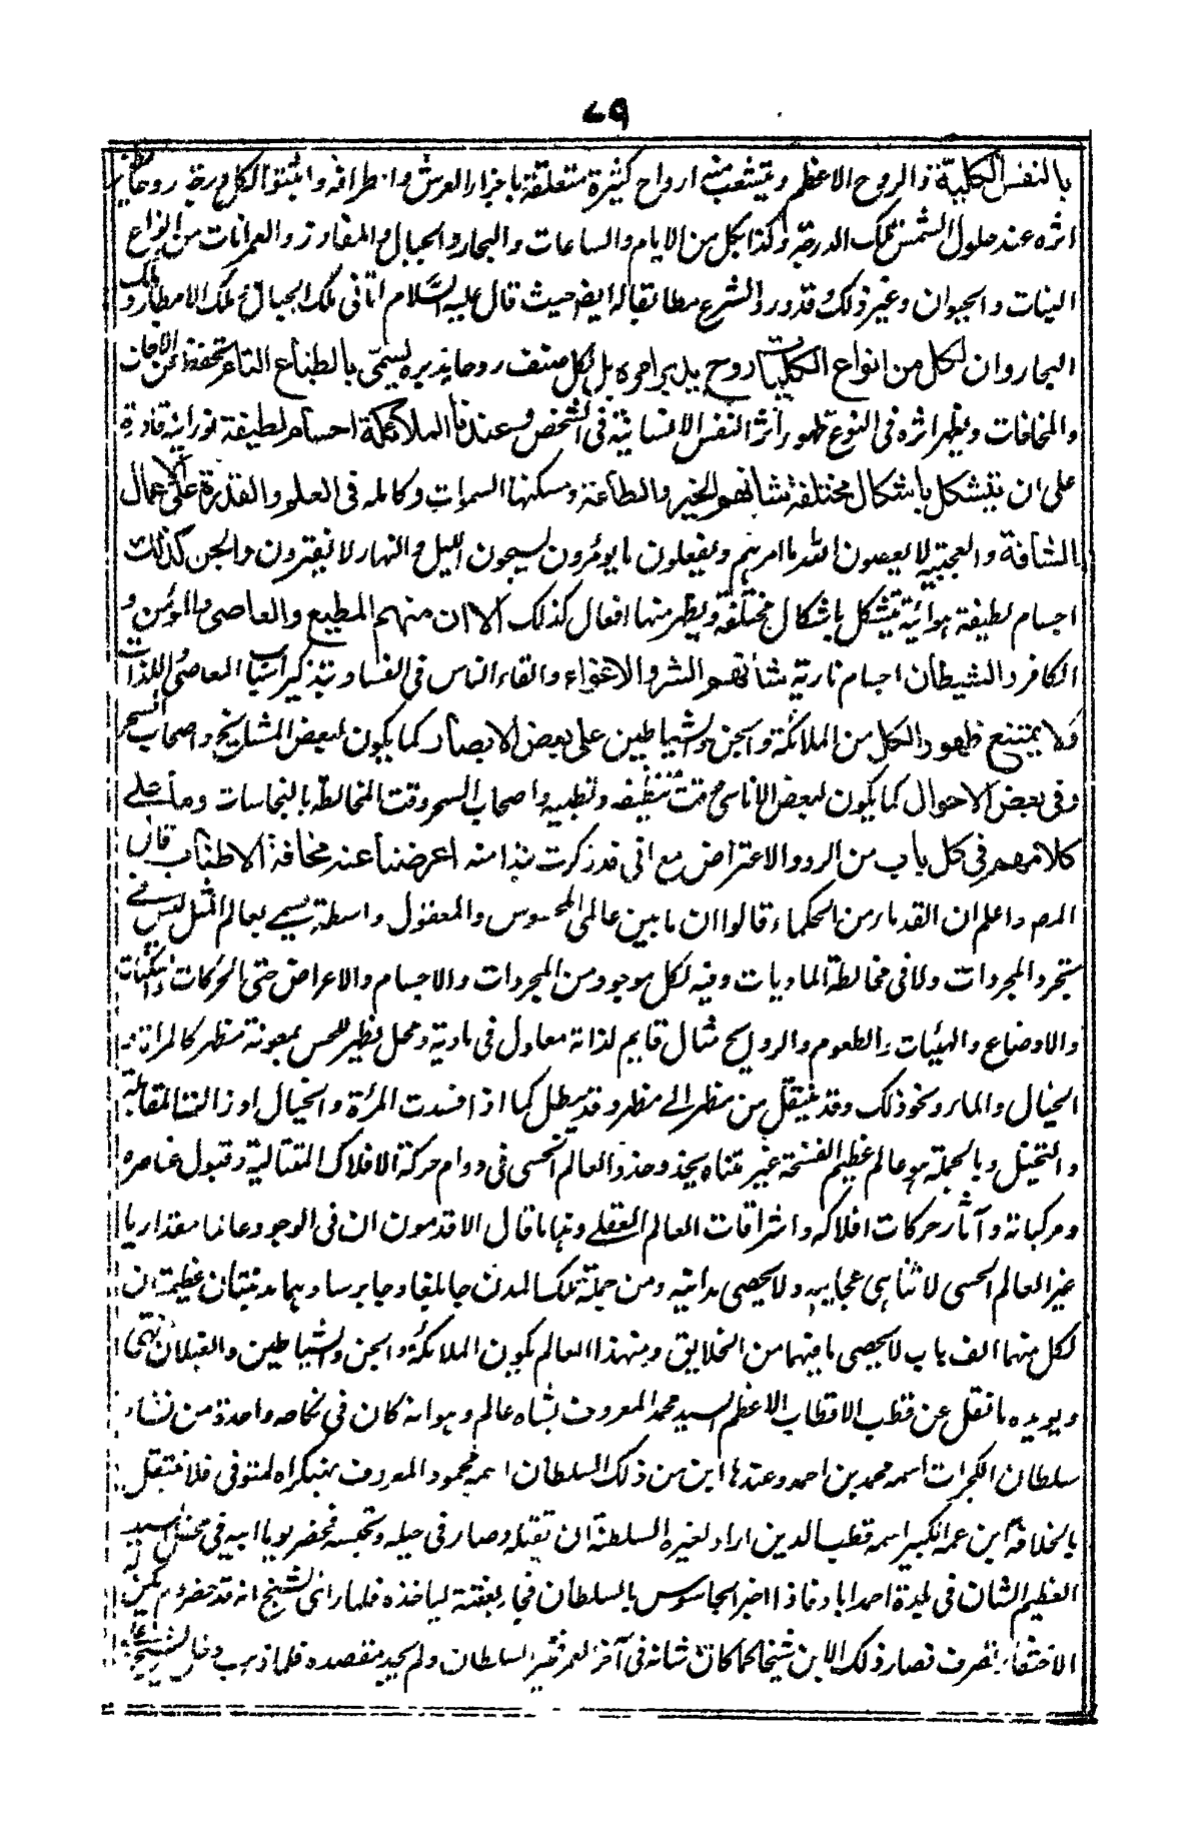 ٧٩
بالنفس الكلية والروح الاعظم ويتشعب منه ارواح كثيرة متعلقة باجزاء العرش واطرافه واثبتوا لكل درجة روحا يظهر
اثره عند حلول الشمس تلك الدرجة وكذا لكل من الايام والساعات والبحار والجبال والمفاوز والعمرانات من انواع
النبات والحيوان وغير ذلك وقد ورد الشرع مطابقا له ايضا حيث قال عليه السلام اتاني ملك الجبال ملك الامطار و ملك
البحار وان لكل من انواع الكليات روح يدبر امره بل لكل صنف روحا يدبره يسمى بالطباع التام تحفظه عن الآفات
والمخافات ويظهر اثره في النوع ظهور اثر النفس الانسانية في الشخص وعندنا الملائكة اجسام لطيفة نورانية قادرة
على ان يتشكل باشكال مختلفة شانهم الخير والطاعة ومسكنها السموات وكاملة في العلم والقدرة على الاعمال
الشاقة والعجيبة لا يعصون الله ما امرهم ويفعلون ما يؤمرون يسبحون الليل والنهار لا يفترون والجن كذلك
اجسام لطيفة هوائية يتشكل باشكال مختلفة ويظهر منها افعال كذلك الا ان منهم المطيع والعاصي والمؤمن و
الكافر والشيطان اجسام نارية شانهم الشر والاغواء والقاء الناس في الفساد بتذكير اسباب المعاصي واللذات
فلا يمتنع ظهور الكل من الملائكة والجن والشياطين على بعض الابصار كما يكون لبعض المشايخ واصحاب السحر
وفي بعض الاحوال كما يكون لبعض الاناسي وقت تنظيفه وتطييبه واصحاب السحر وقت المخالطة بالنجاسات وما على
كلامهم في كل باب من الرد والاعتراض مع اني قد ذكرت نبذا منه اعرضنا عنه مخافة الاطناب قال
المصـ واعلم ان القدماء من الحكماء قالوا ان ما بين عالمي المحسوس والمعقول واسطة يسمى بعالم المثل ليس في
تجرد المجردات ولا في مخالطة الماديات وفيه لكل موجود من المجردات والاجسام والاعراض حتى الحركات والسكنات
والاوضاع والهيئات والطعوم والروايح مثال قايم لذاته معلول في مادية ومحل يظهر للحس بمعونة مظهر كالمرآة و
الخيال والماء ونحو ذلك وقد ينتقل من مظهر الى مظهر وقد يبطل كما اذا فسدت المرآة والخيال او زالت المقابلة
والتخيل وبالجملة هو عالم عظيم الفسحة غير متناه يحذو حذو العالم الحسي في دوام حركة الافلاك المثالية وقبول عناصره
ومركباته وآثار حركات افلاكه واشراقات العالم العقلي وهذا ما قال الاقدمون ان في الوجود عالما مقداريا
غير العالم الحسي لا تتناهى عجايبه ولا يحصى مداينه ومن جملة تلك المدن جابلقا وجابرسا وهما مدينتان عظيمتان
لكل منهما الف باب لا يحصى ما فيهما من الخلايق ومن هذا العالم يكون الملائكة والجن والشياطين والغيلان انتهى
ويويده ما نقل عن قطب الاقطاب الاعظم السيد محمد المعروف بشاه عالم وهو انه كان في نكاحه واحدة من نساء
سلطان الكجرات اسمه محمد بن احمد وعندها ابن من ذلك السلطان اسمه محمود المعروف ببيكراه لمتوفي فلما انتقل
بالخلافة ابن عمه الكبير اسمه قطب الدين اراد لغيره السلطنة ان يقتله وصار في حيله وتجسسه فحضر يوما ابيه في مجلس السيد
العظيم الشان في بلدة احمداباد فاذا اخبر الجاسوس بالسلطان فجاء بغتة لياخذه فلما راى الشيخ انه قد حضر ولم يمكن له
الاختفاء تصرف فصار ذلك الابن شيخا كما كان شانه في آخر العمر فتحير السلطان ولم يجد مقصده فلما ذهب ودخل الشيخ